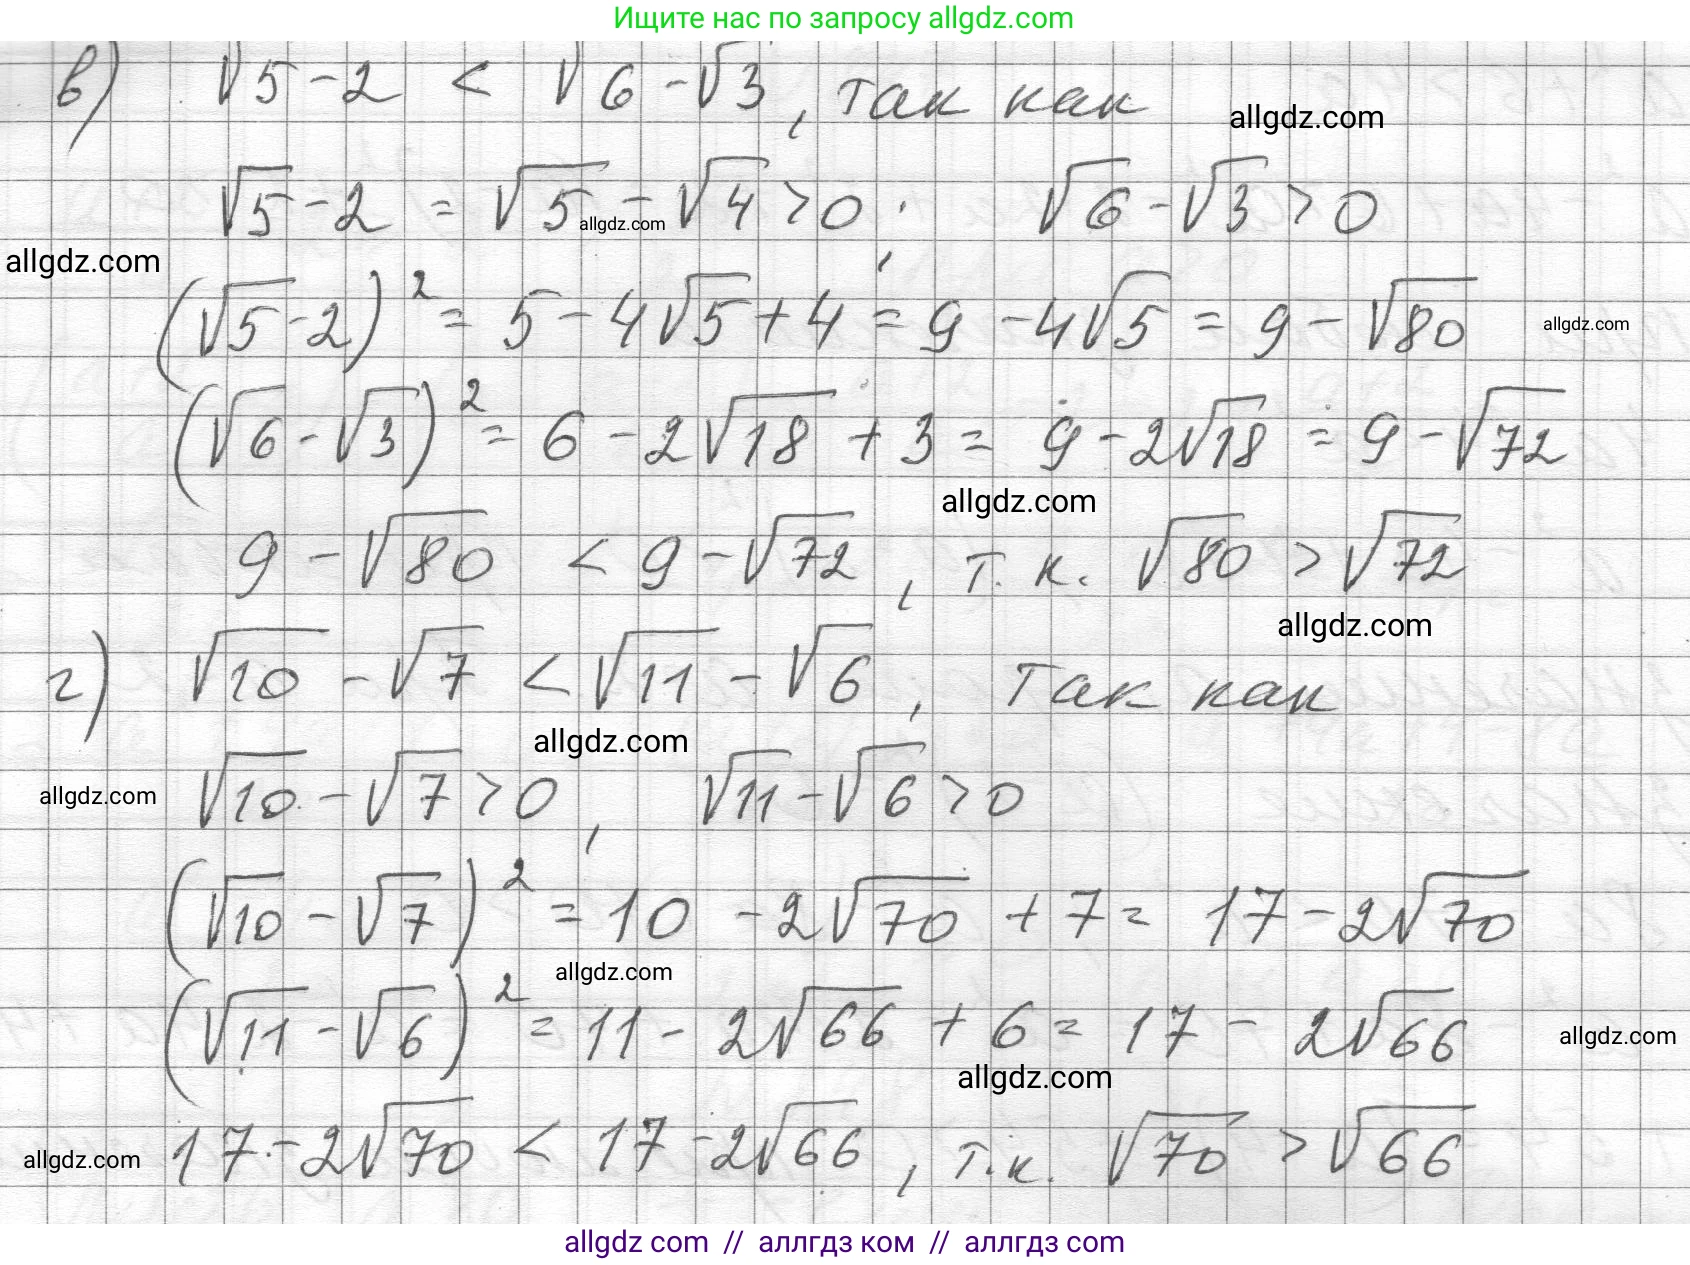 Ищите нас по запросу allgdz.com
в) √5 - 2 < √6 - √3, так как
allgdz.com
√5 - 2 = √5 - √4 > 0, √6 - √3 > 0
allgdz.com
allgdz.com
(√5 - 2)² = 5 - 4√5 + 4 = 9 - 4√5 = 9 - √80
allgdz.com
(√6 - √3)² = 6 - 2√18 + 3 = 9 - 2√18 = 9 - √72
allgdz.com
9 - √80 < 9 - √72, т.к. √80 > √72
allgdz.com
г) √10 - √7 < √11 - √6, так как
allgdz.com
√10 - √7 > 0, √11 - √6 > 0
allgdz.com
(√10 - √7)² = 10 - 2√70 + 7 = 17 - 2√70
allgdz.com
(√11 - √6)² = 11 - 2√66 + 6 = 17 - 2√66
allgdz.com
allgdz.com
17 - 2√70 < 17 - 2√66, т.к. √70 > √66
allgdz.com
allgdz com // аллгдз ком // аллгдз com